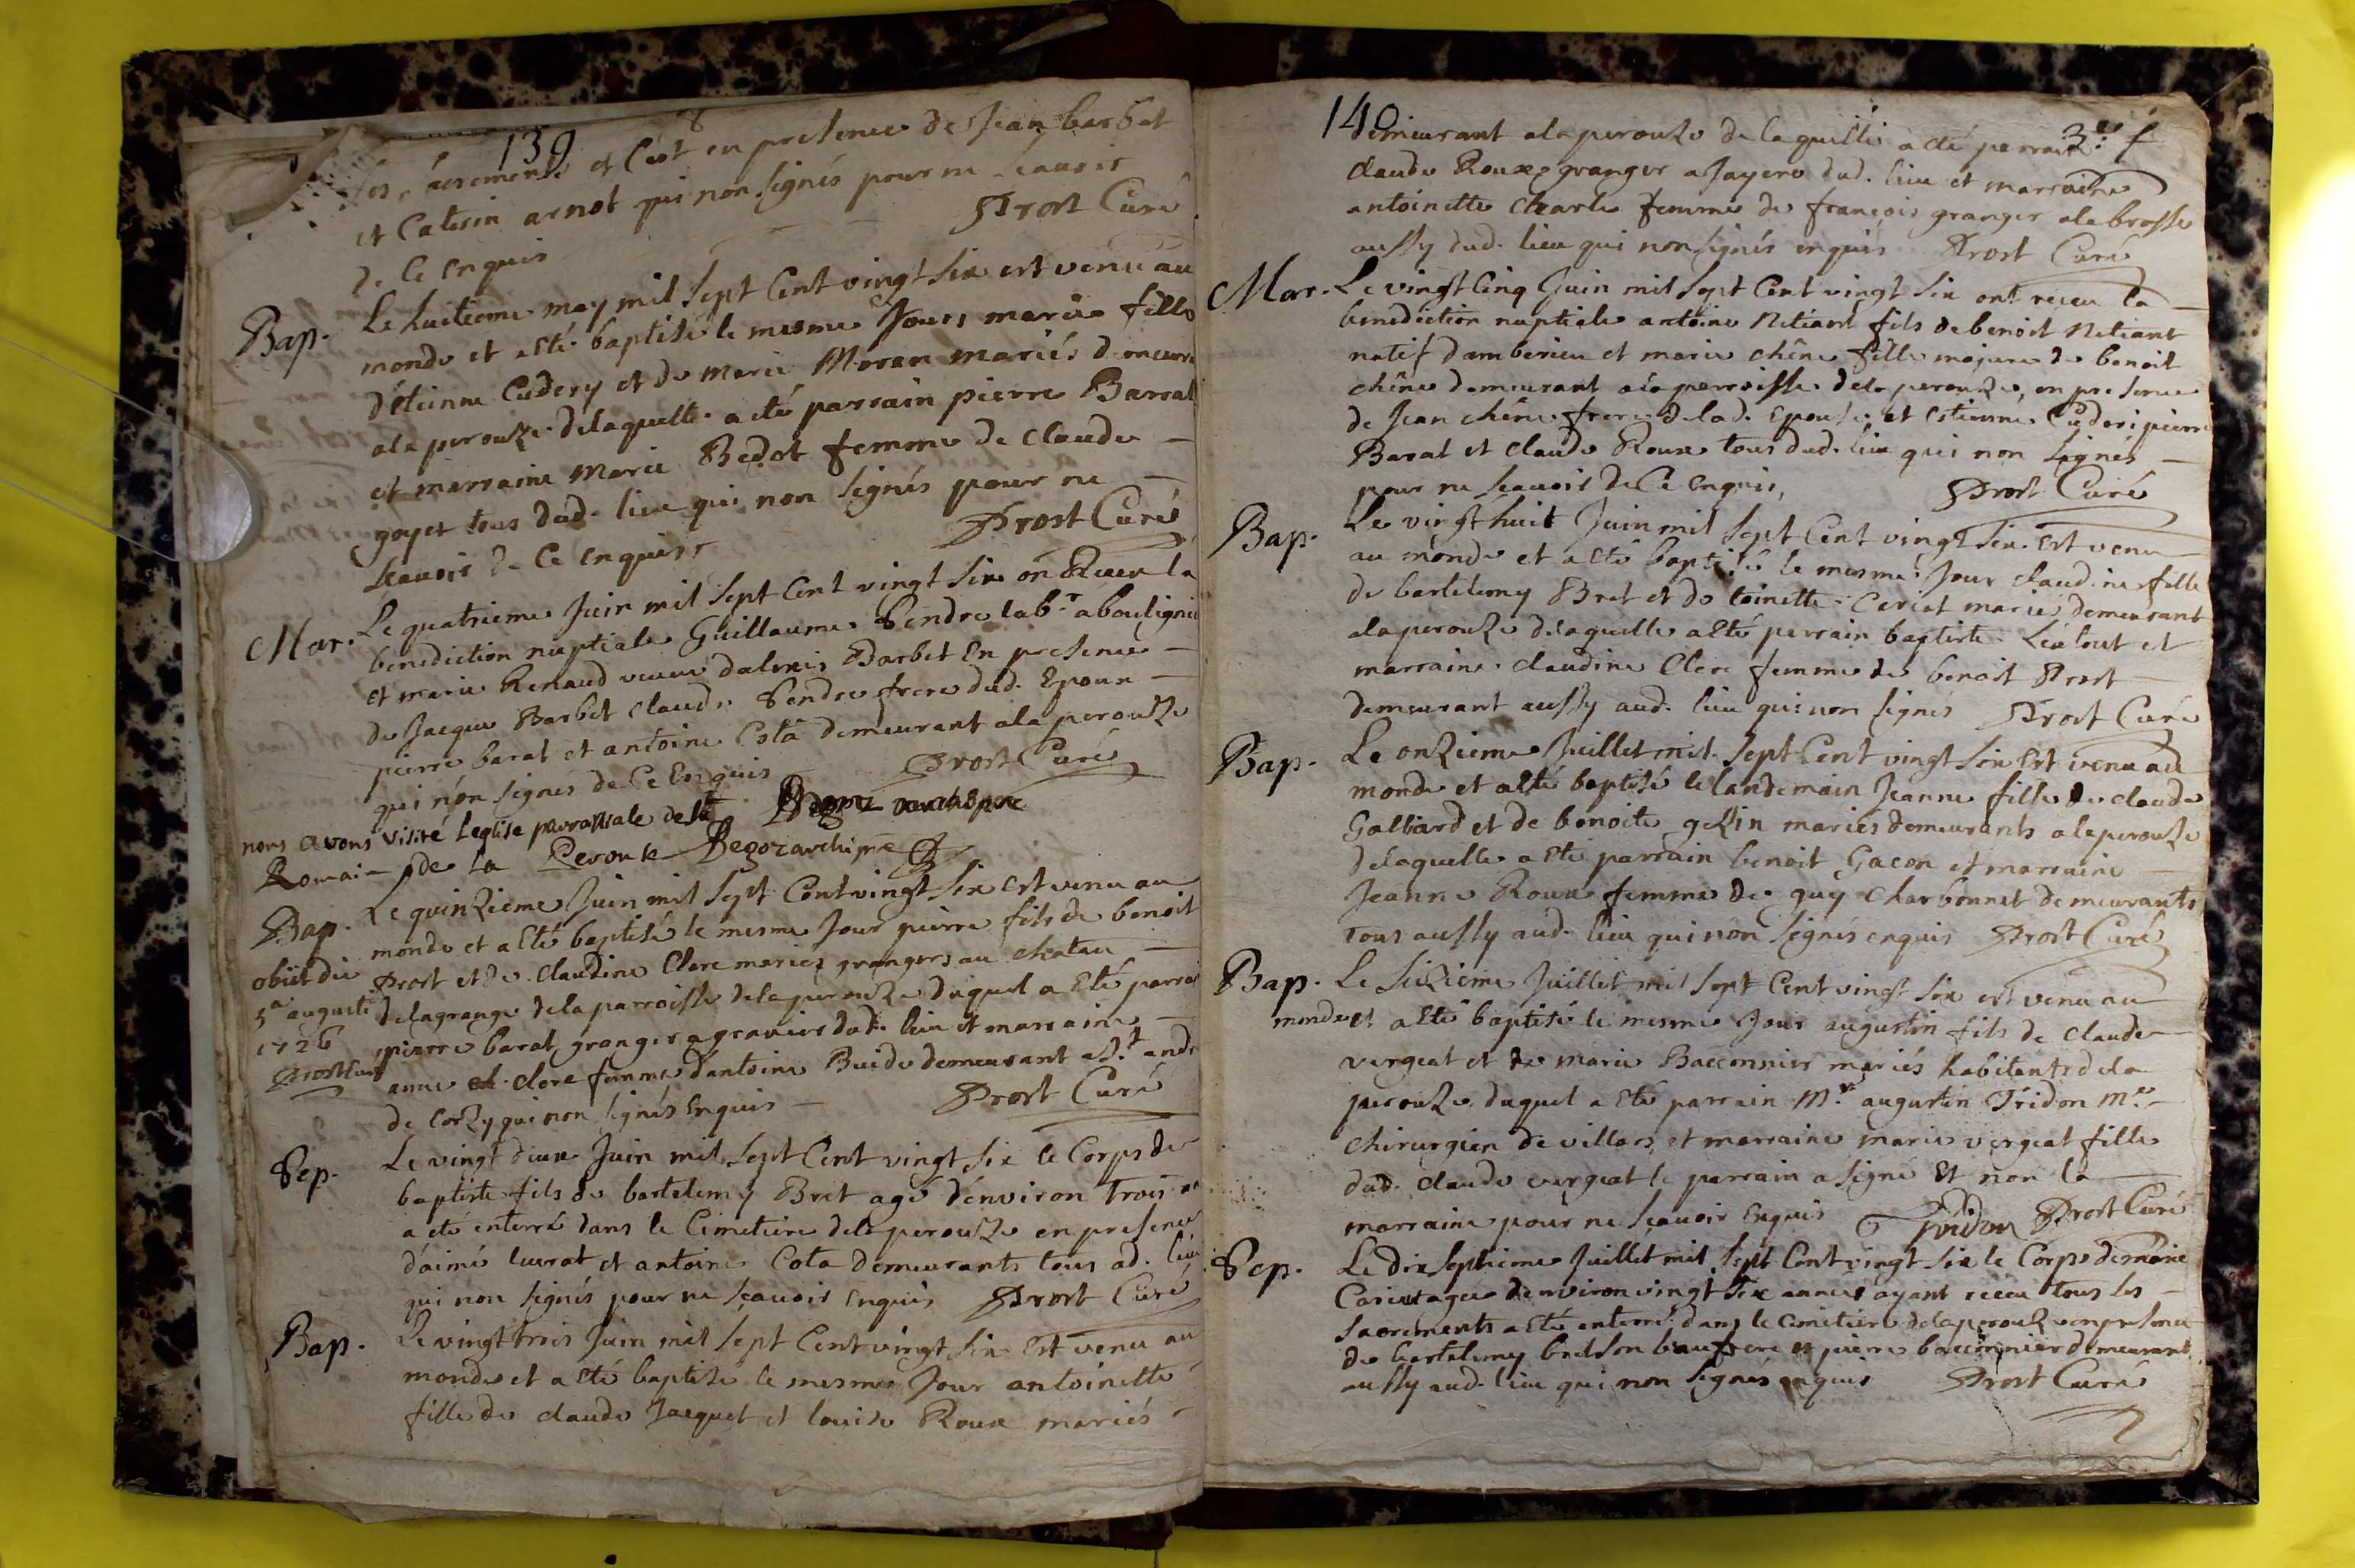 139
et C'est en presence de Jean barbet
et Caterin arnot qui non signés pour ne scauoir
de Ce enquis Prost Curé
Bap. Le huitieme may mil sept Cent vingt six est venu au
monde et a esté baptisé le mesme Jours marie fille
d'étienne Cudery et de marie Moran mariés demeurt
ala perouze delaquelle a esté parrain pierre Barral
et marraine marie Bedot femme de claude
goyet tous dud. lieu qui non signés pour ne
scauoir de Ce enquis Prost Curé
Mar. Le quatrieme Juin mil sept Cent vingt six on Receu la
benediction nuptiale Guillaume Pendre lab.r abouligneu
et marie Renaud veuue dalexis Barbet En presence
de Jacque Barbet claude Pendre frere dud. Epoux
pierre barat et antoine Cota demeurant ala perouze
qui non signés de Ce Enquis Prost Curé
nous avons visité leglise parroissiale de St
Romain de la Perouse Degoz archiprê
Bap. Le quinzieme Juin mil sept Cent vingt six est venu au
monde et a esté baptisé le mesme Jour pierre fils de benoit
obiit die Prost et de claudine Clerc mariez grangers au chateau
5a augusti delagrange dela parroisse dela perouze duquel a Eté parrai
1726 pierre barat granger agravier dud. lieu et marraine
Prost Curé anne clerc femme d'antoine Buide demeurant a St andré
de Corzy qui non signés Enquis Prost Curé
Sep. Le vingt deux Juin mil sept Cent vingt six le Corps de
baptiste fils de bartelemy Bret agé d'environ trois an
a eté enterré dans le Cimetiere dela perouze en presence
d'aimé leurat et antoine Cota demeurants tous ad. lieu
qui non signés pour ne scauoir enquis Prost Curé
Bap. Le vingt trois Juin mil sept Cent vingt six Est venu au
monde et a esté baptisé le mesme Jour antoinette
fille de claude Jacquet et louise Roux mariés
140
demeurant ala perouze de laquelle a eté parrain
claude Roux granger a Jayere dud. lieu et marraine
antoinette charle femme de françois granger ala brosse
aussy dud. lieu qui non signés enquis Prost Curé
Mar. Le vingt Cinq Juin mil sept Cent vingt six ont receu la
benediction nuptiale antoine Netiant fils de benoit Netiant
natif damberieu et marie chêne fille majeure de benoit
chêne demeurant ala parroisse dela perouze, en presence
de Jean chêne frere delad. Epouse et estienne Cuderi pierre
Barat et claude Roux tous dud. lieu qui non signés
pour ne scauoir de Ce enquis, Prost Curé
Bap. Le vingt huit Juin mil sept Cent vingt six Est venu
au monde et a esté baptisé le mesme Jour claudine fille
de bartelemy Bret et de toinette Coriat mariés demeurant
ala perouze delaquelle a esté parrain baptiste et
marraine claudine Clerc femme de benoit Prost
demeurant aussy aud. lieu qui non signés Prost Curé
Bap. Le onzieme Juillet mil sept Cent vingt six Est venu au
monde et a esté baptisé le landemain Jeanne fille de claude
Galliard et de benoite gellin mariés demeurants ala perouze
delaquelle a eté parrain benoit Gacon et marraine
Jeanne Roux femme de guy charbonnet demeurants
tous aussy aud. lieu qui non signés enquis Prost Curé
Bap. Le sizieme Juillet mil sept Cent vingt six est venu au
monde et a esté baptisé le mesme Jour augustin fils de claude
vergeat et de marie Bacconnier mariés habitants dela
perouze duquel a eté parrain M.r augustin Tridon m.e
chirurgien de villars et marraine marie vergeat fille
dud. claude vergeat le parrain a signé Et non la
marraine pour ne scauoir Enquis Tridon Prost Curé
Sep. Le dix septieme Juillet mil sept Cent vingt six le Corps de marie
Coriat agee denviron vingt six années ayant receu tous les
Sacrements a esté enterré dans le Cimetiere dela perouze en presence
de bartelemy bret son beaufrere et pierre bacconnier demeurant
aussy aud. lieu qui non signés enquis Prost Curé